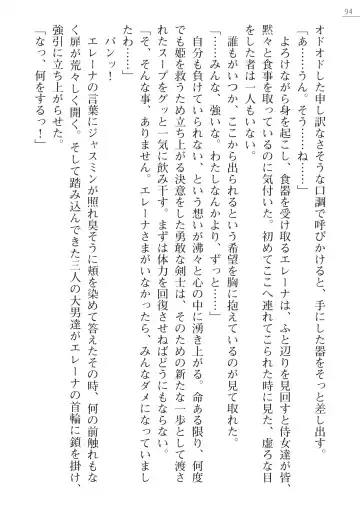 94
オドオドした申し訳なさそうな口調で呼びかけると、手にした器をそっと差し出す。
「あ……うん。そう……ね……」
よろけながら身を起こし、食器を受け取るエレーナは、ふと辺りを見回すと侍女達が皆、
黙々と食事を取っているのに気付いた。初めてここへ連れてこられた時に見た、虚ろな目
をした者は一人もいない。
誰もがいつか、ここから出られるという希望を胸に抱えているのが見て取れた。
「……みんな、強いな。わたしなんかより、ずっと……」
自分も負けていられない、という想いが沸々と心の中に湧き上がる。命ある限り、何度
でも姫を救うため立ち上がる決意をした勇敢な剣士は、そのための新たな一歩として渡さ
れたスープをグッと一気に飲み干す。まずは体力を回復させねばどうにもならない。
「そ、そんな事、ありません。エレーナさまがいなかったら、みんなダメになっていまし
たわ……」
バンッ！
エレーナの言葉にジャスミンが照れ臭そうに頬を染めて答えたその時、何の前触れもな
く扉が荒々しく開く。そして踏み込んできた三人の大男達がエレーナの首輪に鎖を掛け、
強引に立ち上がらせた。
「なっ、何をするっ！」